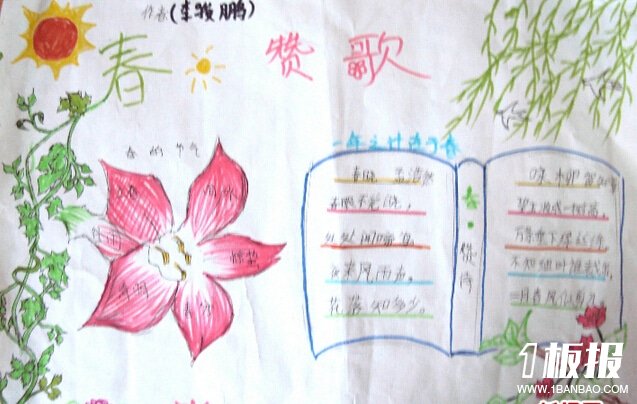 作者(李骏鹏)
春 赞 歌
春的节气
雨水
惊蛰
一年之计在于春
春晓 孟浩然
春眠不觉晓，
处处闻啼鸟，
夜来风雨声，
花落知多少。
春·赞诗
咏柳 贺知章
碧玉妆成一树高，
万条垂下绿丝绦，
不知细叶谁裁出，
二月春风似剪刀
1板报
WWW.1BANBAO.COM